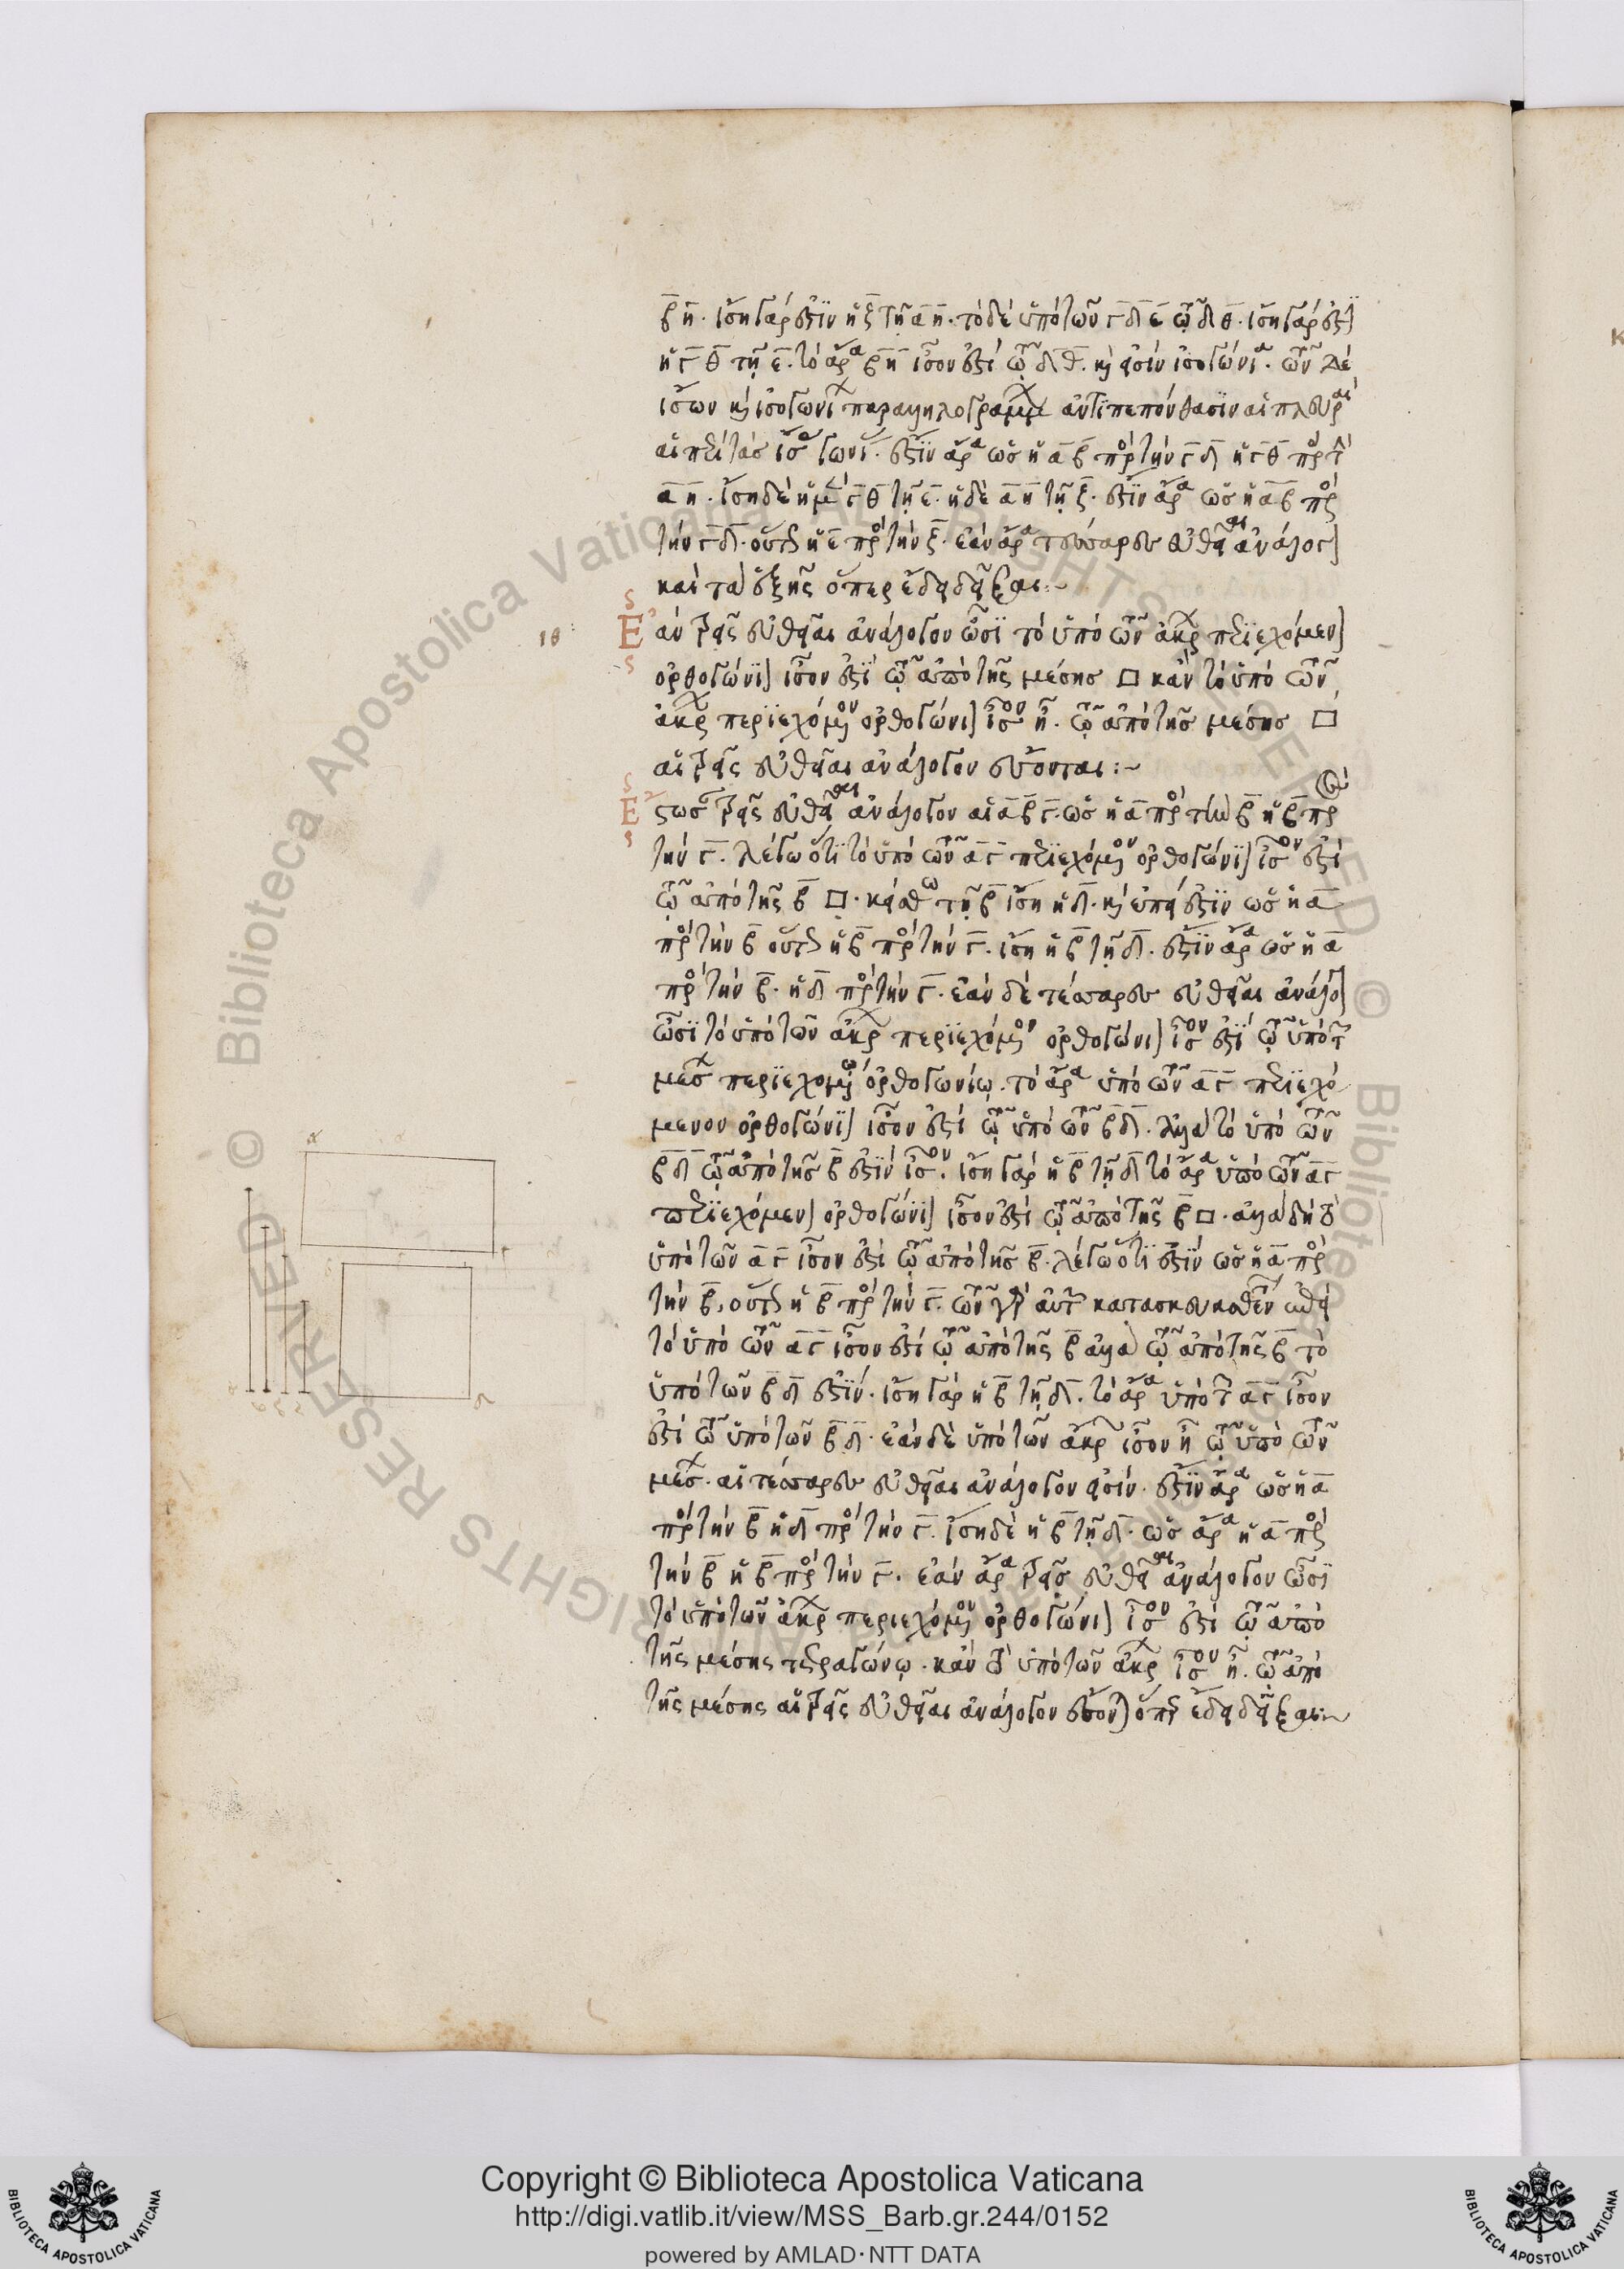 β̅η̅. ἴση γάρ ἐστϊν ἡ ζ̅ τῆ α̅η̅. τὸ δὲ ὑπὸ τῶν γ̅δ̅ ε̅ τῷ δ̅θ̅. ἴση γάρ ἐστὶ
ἡ γ̅θ̅ τῆ ε̅. τὸ ἄρα β̅η̅ ἴσον ἐστὶ τῷ δ̅θ̅. καὶ εἰσὶν ἰσογώνια. τῶν δὲ
ἴσων καὶ ἰσογωνίων παραλληλογράμμων ἀντϊπεπόνθασϊν αἱ πλευραὶ
αἱ περὶ τὰς ἴσας γωνίας. ἔστϊν ἄρα ὡς ἡ α̅β̅ πρὸς τὴν γ̅δ̅ ἡ γ̅θ̅ πρὸς τὴν
α̅η̅. ἴση δὲ ἡ μὲν γ̅θ̅ τῆ ε̅. ἡ δὲ α̅η̅ τῆ ζ̅. ἔστϊν ἄρα ὡς ἡ α̅β̅ πρὸς
τὴν γ̅δ̅. οὕτως ἡ ε̅ πρὸς τὴν ζ̅. ἐὰν ἄρα τέσσαρες εὐθεῖαι ἀνάλογον
καὶ τὰ ἑξῆς ὅπερ ἔδει δεῖξαι:~
ιθ
Ἐὰν τρεῖς εὐθεῖαι ἀνάλογον ὦσϊ τὸ ὑπὸ τῶν ἄκρων περϊεχόμενον
ὀρθογώνϊον ἴσον ἐστϊ τῷ ἀπὸ τῆς μέσης □ κἂν τὸ ὑπὸ τῶν
ἄκρων περϊεχόμενον ὀρθογώνιον ἴσον ῆ. τῷ ἀπὸ τῆς μέσης □
αἱ τρεῖς εὐθεῖαι ἀνάλογον ἔσονται:~
Ἔστωσαν τρεῖς εὐθεῖαι ἀνάλογον αἱ α̅ β̅ γ̅. ὡς ἡ α̅ πρὸς τὴν β̅ ἡ β̅ πρὸς
τὴν γ̅. λέγω ὅτϊ τὸ ὑπὸ τῶν α̅ γ̅ περϊεχόμενον ὀρθογώνϊον ἴσον ἐστὶ
τῷ ἀπὸ τῆς β̅ □. κείσθω τῆ β̅ ἴση ἡ δ̅. καὶ ἐπεί ἐστϊν ὡς ἡ α̅
πρὸς τὴν β̅ οὕτως ἡ β̅ πρὸς τὴν γ̅. ἴση ἡ β̅ τῆ δ̅. ἔστϊν ἄρα ὡς ἡ α̅
πρὸς τὴν β̅. ἡ δ̅ πρὸς τὴν γ̅. ἐὰν δὲ τέσσαρες εὐθεῖαι ἀνάλογον
ὦσϊ τὸ ὑπὸ τῶν ἄκρων περϊεχόμενον ὀρθογώνιον ἴσον ἐστϊ τῷ ὑπὸ τῶν
μέσων περϊεχομένω ὀρθογωνίῳ. τὸ ἄρα ὑπὸ τῶν α̅ γ̅ περϊεχό
μενον ὀρθογώνϊον ἴσον ἐστὶ τῷ ὑπὸ τῶν β̅ δ̅. ἀλλὰ τὸ ὑπὸ τῶν
β̅ δ̅ τῷ ἀπὸ τῆς β̅ ἐστϊν ἴσον. ἴση γὰρ ἡ β̅ τῆ δ̅ τὸ ἄρα ὑπὸ τῶν α̅ γ̅
περϊεχόμενον ὀρθογώνϊον ἴσον ἐστὶ τῷ ἀπὸ τῆς β̅ □. ἀλλὰ δὴ τὸ
ὑπὸ τῶν α̅ γ̅ ἴσον ἐστὶ τῷ ἀπὸ τῆς β̅. λέγω ὅτϊ ἐστϊν ὡς ἡ α̅ πρὸς
τὴν β̅, οὕτως ἡ β̅ πρὸς τὴν γ̅. τῶν γὰρ αὐτῶν κατασκευασθέντων ἐπεὶ
τὸ ὑπὸ τῶν α̅ γ̅ ἴσον ἐστὶ τῷ ἀπὸ τῆς β̅ ἀλλὰ τῷ ἀπὸ τῆς β̅ τὸ
ὑπὸ τῶν β̅ δ̅ ἐστϊν. ἴση γὰρ ἡ β̅ τῆ δ̅. τὸ ἄρα ὑπὸ τῶν α̅ γ̅ ἴσον
ἐστὶ τῷ ὑπὸ τῶν β̅ δ̅. ἐὰν δὲ ὑπὸ τῶν ἄκρων ἴσον ῆ τῷ ὑπὸ τῶν
μέσων. αἱ τέσσαρες εὐθεῖαι ἀνάλογον εἰσίν. ἔστϊν ἄρα ὡς ἡ α̅
πρὸς τὴν β̅ ἡ δ̅ πρὸς τὴν γ̅. ἴση δὲ ἡ β̅ τῆ δ̅. ὡς ἄρα ἡ α̅ πρὸς
τὴν β̅ ἡ β̅ πρὸς τὴν γ̅. ἐὰν ἄρα τρεῖς εὐθεῖαι ἀνάλογον ὦσϊ
τὸ ὑπὸ τῶν ἄκρων περιεχόμενον ὀρθογώνιον ἴσον ἐστὶ τῷ ἀπὸ
τῆς μέσης τετραγώνῳ. κἂν τὸ ὑπὸ τῶν ἄκρων ἴσον ῆ. τῷ ἀπὸ
τῆς μέσης αἱ τρεῖς εὐθεῖαι ἀνάλογον ἔσονται ὅπερ ἔδει δεῖξαι:~
Copyright © Biblioteca Apostolica Vaticana
http://digi.vatlib.it/view/MSS_Barb.gr.244/0152
powered by AMLAD·NTT DATA